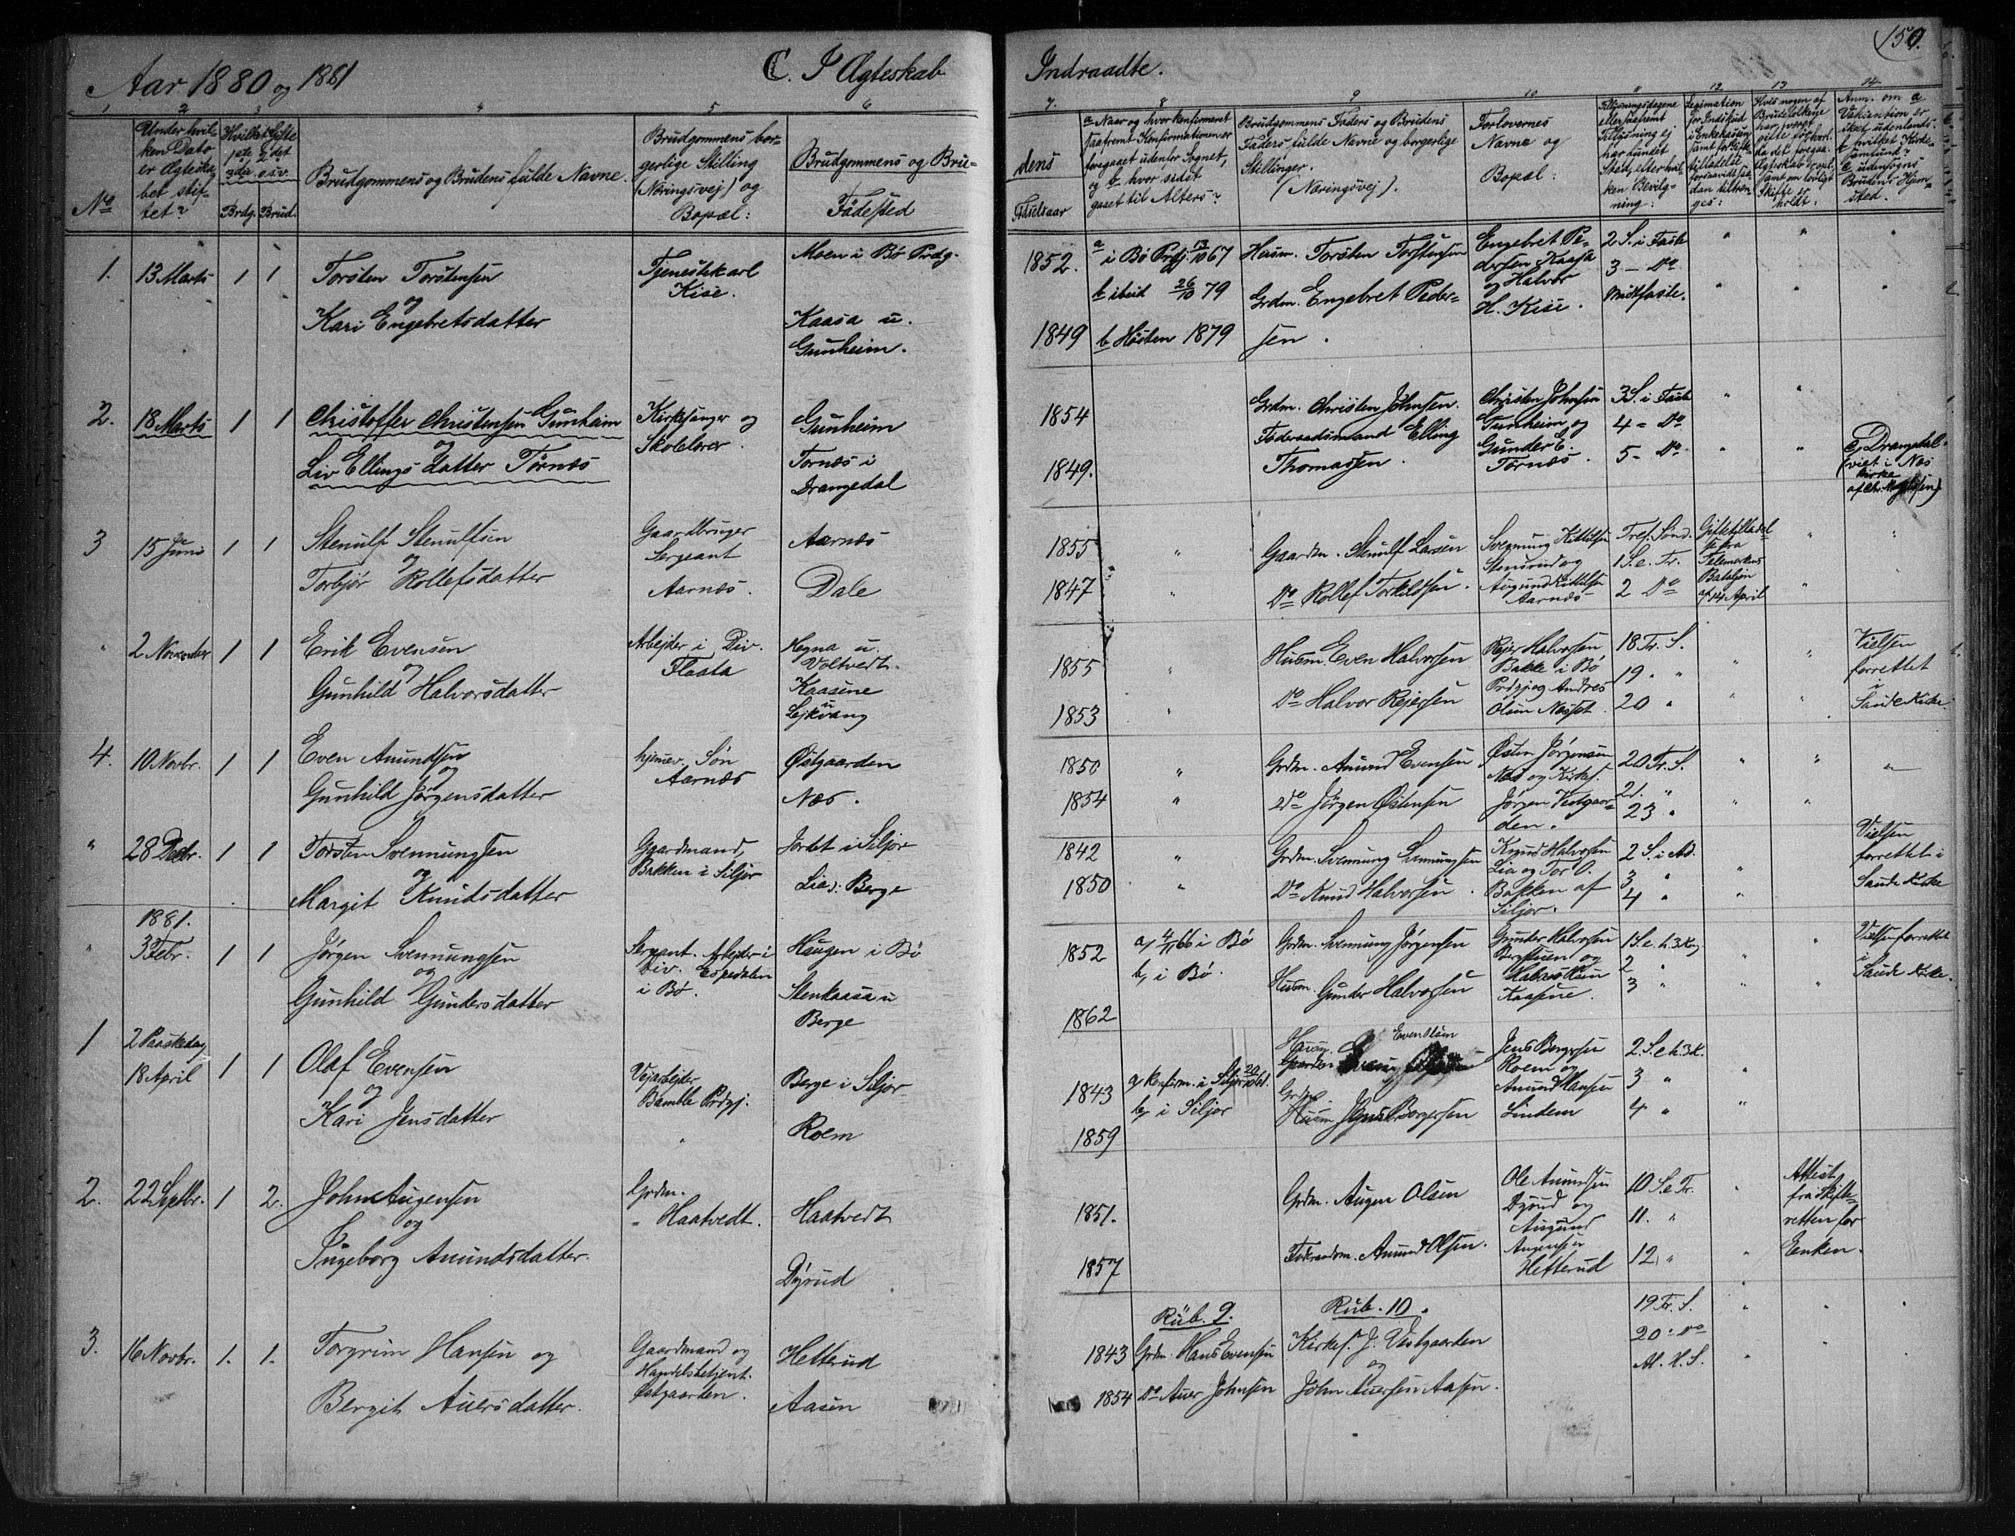 Aar 1880 og 1881
C. I Ægteskab
Indraadte.
150.
1 2 3 4 5 6
7. 8 9 10 11 12 13 14
No
Under hvil-
ken Dato
er Ægteska-
bet stif-
tet?
Hvilket Gifte
1ste, 2det
3die o.s.v.
Brdg. Brud.
Brudgommens og Brudens fulde Navne.
Brudgommens bor-
gerlige Stilling
(Næringsvej) og
Bopæl:
Brudgommens og Bru-
Fødested
dens
Fødselsaar
a Naar og hvor konfirmeret
saafremt Konfirmationen er
foregaaet udenfor Sognet,
og b. hvor sidst
gaaet til Alters?
Brudgommens Faders og Brudens
Faders fulde Navne og borgerlige
Stillinger.
(Næringsvej).
Forlovernes
Navne og
Bopæl:
1. 13 Marts 1 1
Torsten Torstensen
og
Kari Engebretsdatter
Tjenestekarl
Kise.
Moen i Bø Prdg.
Kaasa u.
Gunheim.
1852.
1849
a i Bø Prdgj. 67
b ibeid 26/10 79
b Høsten 1879
Husm. Torsten Torstensen
Grdm. Engebret Peder-
sen.
Engebret Pe-
dersen Kaasa
og Halvor
H. Kise.
2 S. i Faste
3 - Do
Midtfaste.
2. 18 Marts 1 1
Christoffer Christensen Gunheim
og
Liv Ellings Datter Tørnæs
Kirkesanger og
Skolelærer.
Gunheim
Tornæs i
Drangedal
1854
1849.
Grdm. Christen Johnsen.
Føderaadsmand Elling
Thomassen.
Christen Johnsen
Gunheim og
Gunder E.
Tørnæs.
3 S. i Faste
4 = Do
5 - Do
c, Drangedal.
(viet i Næs
Kirke
3 15 Juni 1 1
Stenulf Stenulfsen
og
Torbjør Rollefsdatter
Gaardbruger
Sergeant
Aarnæs.
Aarnæs
Dale
1855
1847
Gaardm. Stenulf Larsen
Do Rollef Torkildsen.
Svennung Kittilsen
Stensrud og
Augund Kittilsen
Aarnæs
Tref. Sønd.
1 S. e. Tr.
2 Do
Giftetilladel
se fra
Telemarkens
Bataljon
af 14 April
" 2 November 1 1
Erik Evensen
og
Gunhild Halvorsdatter
Arbejder i Div.
Flaata
Hegna u.
Voltvedt.
Kaasene
u
Lejkvang
1855
1853
Husm. Even Halvorsen
Do Halvor Rejersen
Rejer Halvorsen
Bakke i Bø
Prdgj og Andres
Olsen Næset.
18 Tr. S.
19 " "
20 "
Vielsen
forrettet
i
Saude Kirke.
4. 10 Novbr. 1 1
Even Amundsen
og
Gunhild Jørgensdatter
hjemev. Søn
Aarnæs
Østgaarden
Næs.
1850
1854
Grdm. Amund Evensen
Do Jørgen Østensen
Østen Jørgensen
Næs og Kirkes.
Jørgen Vestgaar-
den.
20 Tr. S.
21. "
23 "
" 28 Decbr. 1 1
Torsten Svennungsen
og
Margit Knudsdatter
Gaardmand,
Bakken i Siljor
Jordet i Siljor
Lia s: Berge
1842
1850
Grdm. Svennung Svennungsen
Do Knud Halvorsen
Knud Halvorsen
Lia og Tor O.
Bakken af
Siljor.
2 S. i Ad.
3 "
4 "
Vielsen
forrettet i
Saude Kirke
1881.
" 3 Febr. 1 1
Jørgen Svennungsen
og
Gunhild Gundersdatter
Sergeant. Arbejder i
Div. Espedalen
i Bø.
Haugen i Bø
Stenkaasa u
Berge
1852
1862
a, 4/11 66 i Bø
b, i Bø.
Grdm. Svennung Jørgensen
Husm. Gunder Halvorsen
Gunder Halvorsen
og
Kaasene.
1 S. e. h. 3 Kg
2 "
3 "
Vielsen forrettet
i
Saude Kirke.
1 2 Paaskedag
18 April 1 1
Olaf Evensen
og
Kari Jensdatter
Vejarbejder
Bamble Prdgj.
"
Berge i Siljor
Roem
1843
1859
a, konfirm. i Siljor
b, i Siljor
Husm.
Gaardm.
Grdm.
Husm Jens Borgersen
Jens Borgersen
Roem og
Amund Hansen
Lindem
2. S. e. h. 3 K.
3 "
4 "
2. 22 Septbr. 1 2.
John Augensen
og
Ingeborg Amundsdatter.
Grdm.
" Haatvedt.
Haatvedt
Dyrud
1851.
1857
Grdm. Augen Olsen
Føderaadsm. Amund Olsen.
Ole Amundsen
Dyrud og
Augund
Augensen
Hetterud
10 S. e Tr.
11. "
12, "
Attest
fra Skifte-
retten for
Enken.
3. 16 Novbr. 1. 1.
Torgrim Hansen og
Bergit Auersdatter.
Gaardmand og
Handelsbetjent.
Østgaarden.
Hetterud
Aasen
1843
1854
Rub. 9:
Grdm. Hans Evensen
Do Auer Johnsen
Rub. 10.
Kirkes. J. Vestgaarden
og
John Auersen Aasen.
19 Tr. S.
20 : Do
Al. H. S.